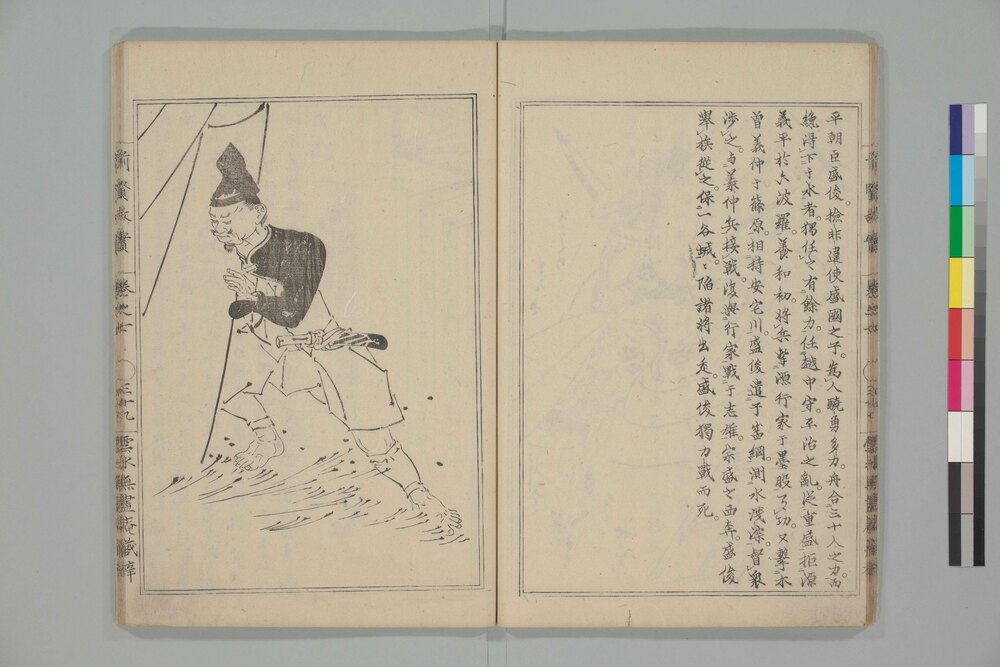 平朝臣盛俊。檢非違使盛國之子。爲人驍勇多力。舟合三十人之力。而
纔得下于水者。獨任之有餘力。任越中守。平治之亂。從重盛拒源
義平於六波羅。養和初。將兵擊源行家于墨股有功。又擊木
曾義仲于篠原。相持安宅川。盛俊遣子盛綱測水淺深。督衆
渉之。與義仲兵接戰。復與行家戰于志雄。宗盛之西奔。盛俊
擧族從之。保一谷城。城陷諸將出走。盛俊獨力戰而死。
前賢故實
卷之廿
三十九
雲水無盡庵藏梓